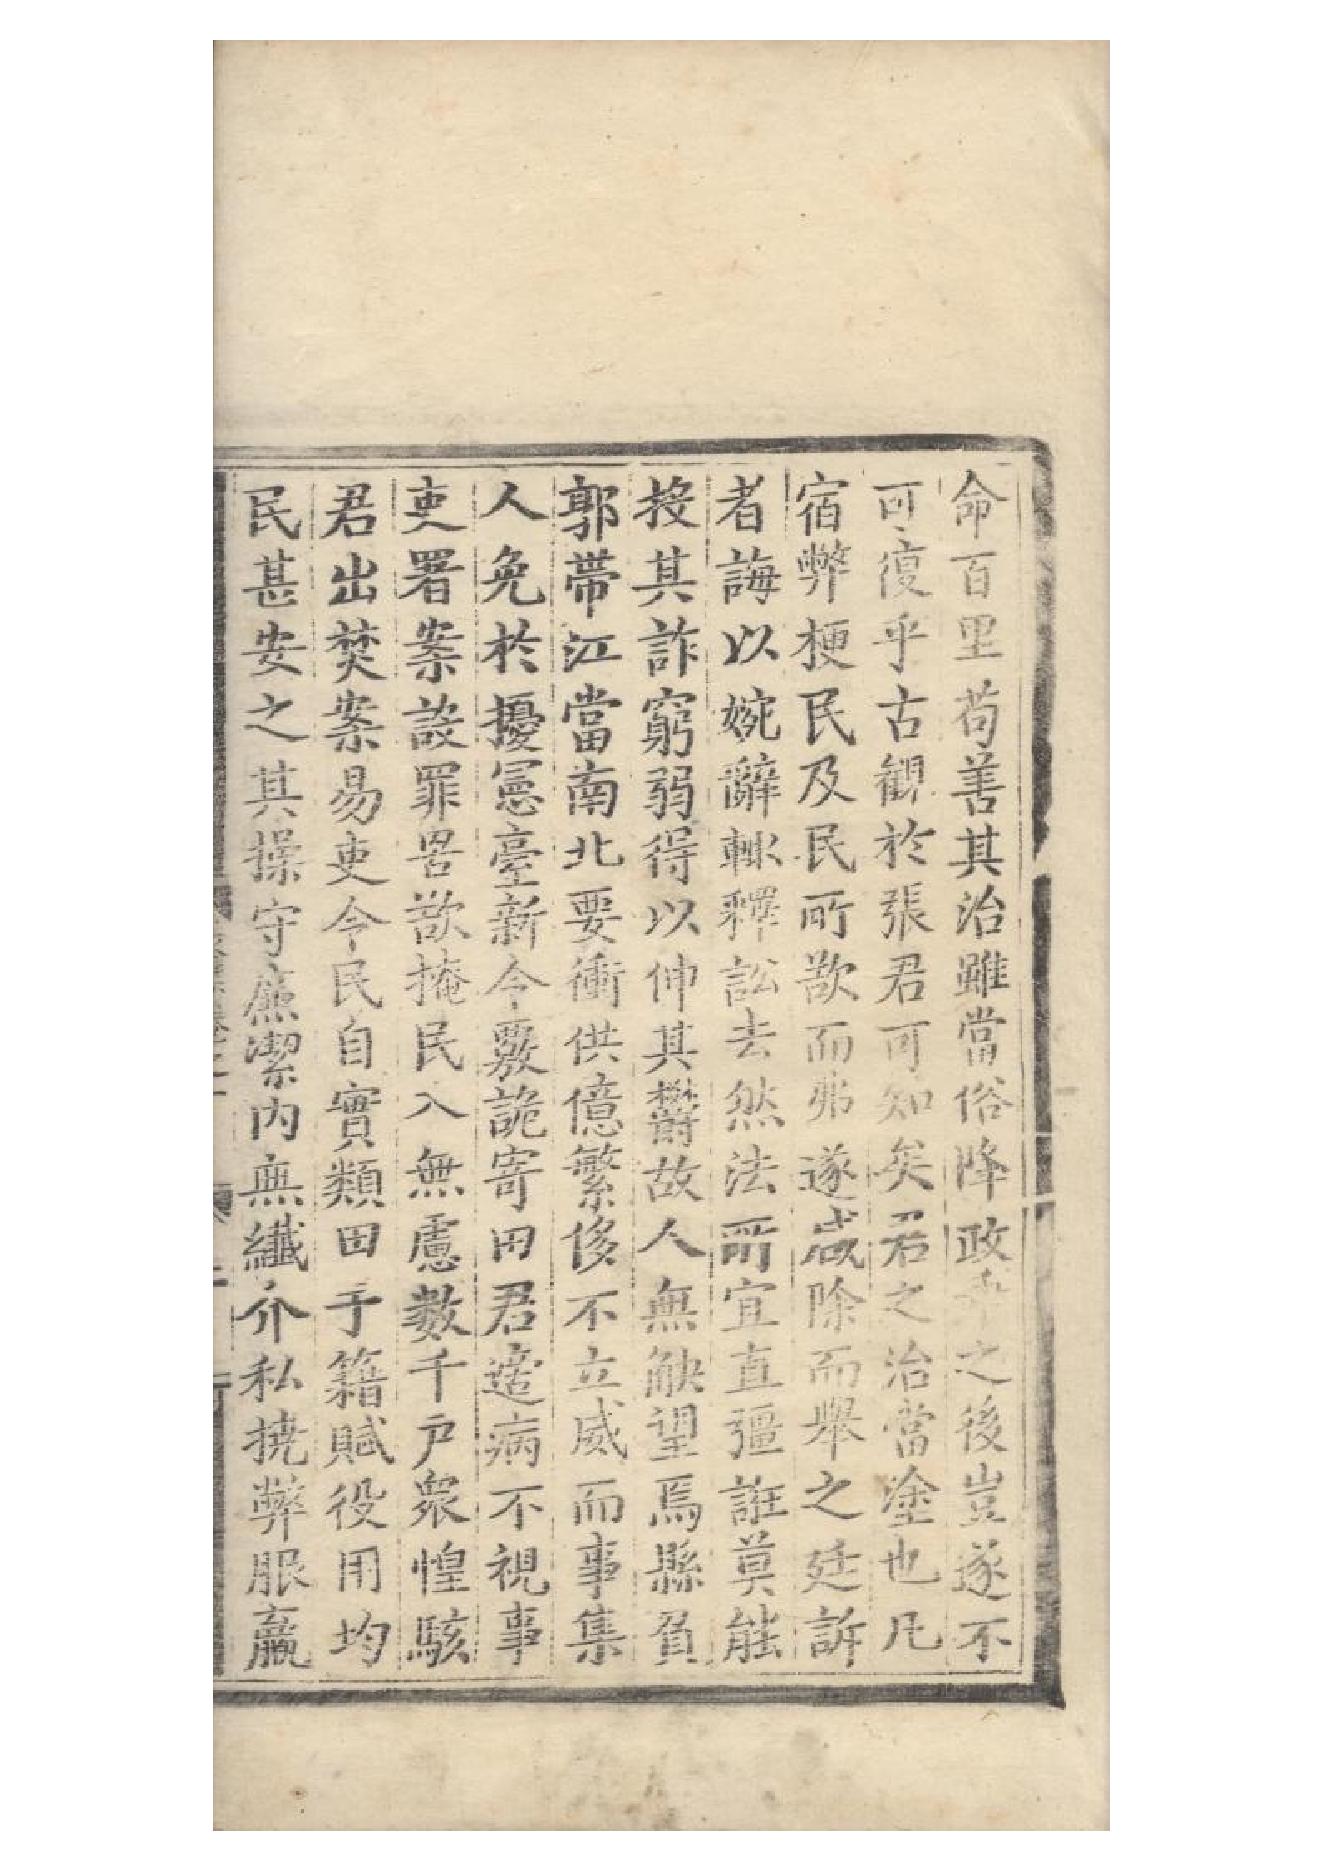 命百里苟善其治雖當俗降政之後豈遂不
可復乎古觀於張君可知矣君之治當塗也凡
宿弊梗民及民所欲而弗遂咸除而舉之廷訴
者誨以婉辭輙釋訟去然法所宜直彊誑莫能
挍其詐窮弱得以伸其欝故人無觖望焉縣負
郭帶江當南北要衝供億繁侈不立威而事集
人免於擾憲臺新令覈詭寄田君適病不視事
吏署案設罪罟欲掩民入無慮數千戶衆惶駭
君出焚案易吏令民自實類田于籍賦役用均
民甚安之其操守㢘潔內無纖介私撓弊服羸